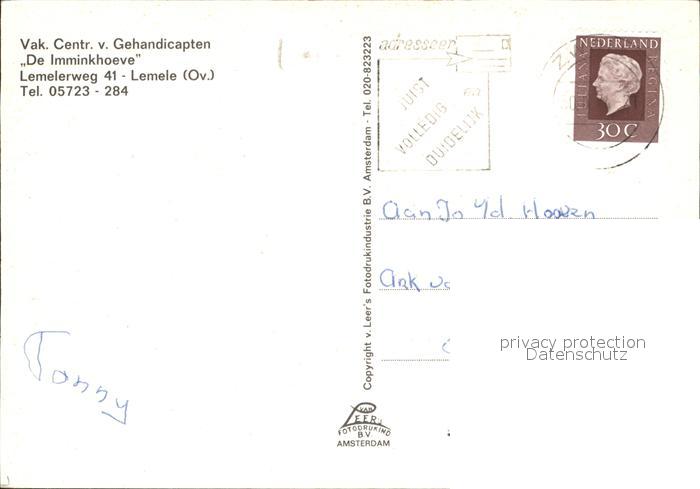 Vak. Centr. v. Gehandicapten
„De Imminkhoeve"
Lemelerweg 41 - Lemele (Ov.)
Tel. 05723 - 284
Tonny
Copyright v. Leer's Fotodrukindustrie B.V. Amsterdam - Tel. 020-823223
VAN
LEER's
FOTODRUKIND
B.V.
AMSTERDAM
adresseer
JUIST
VOLLEDIG en
DUIDELIJK
NEDERLAND
JULIANA REGINA
30 C
Aan Jo v/d Hoeven
Ark
privacy protection
Datenschutz